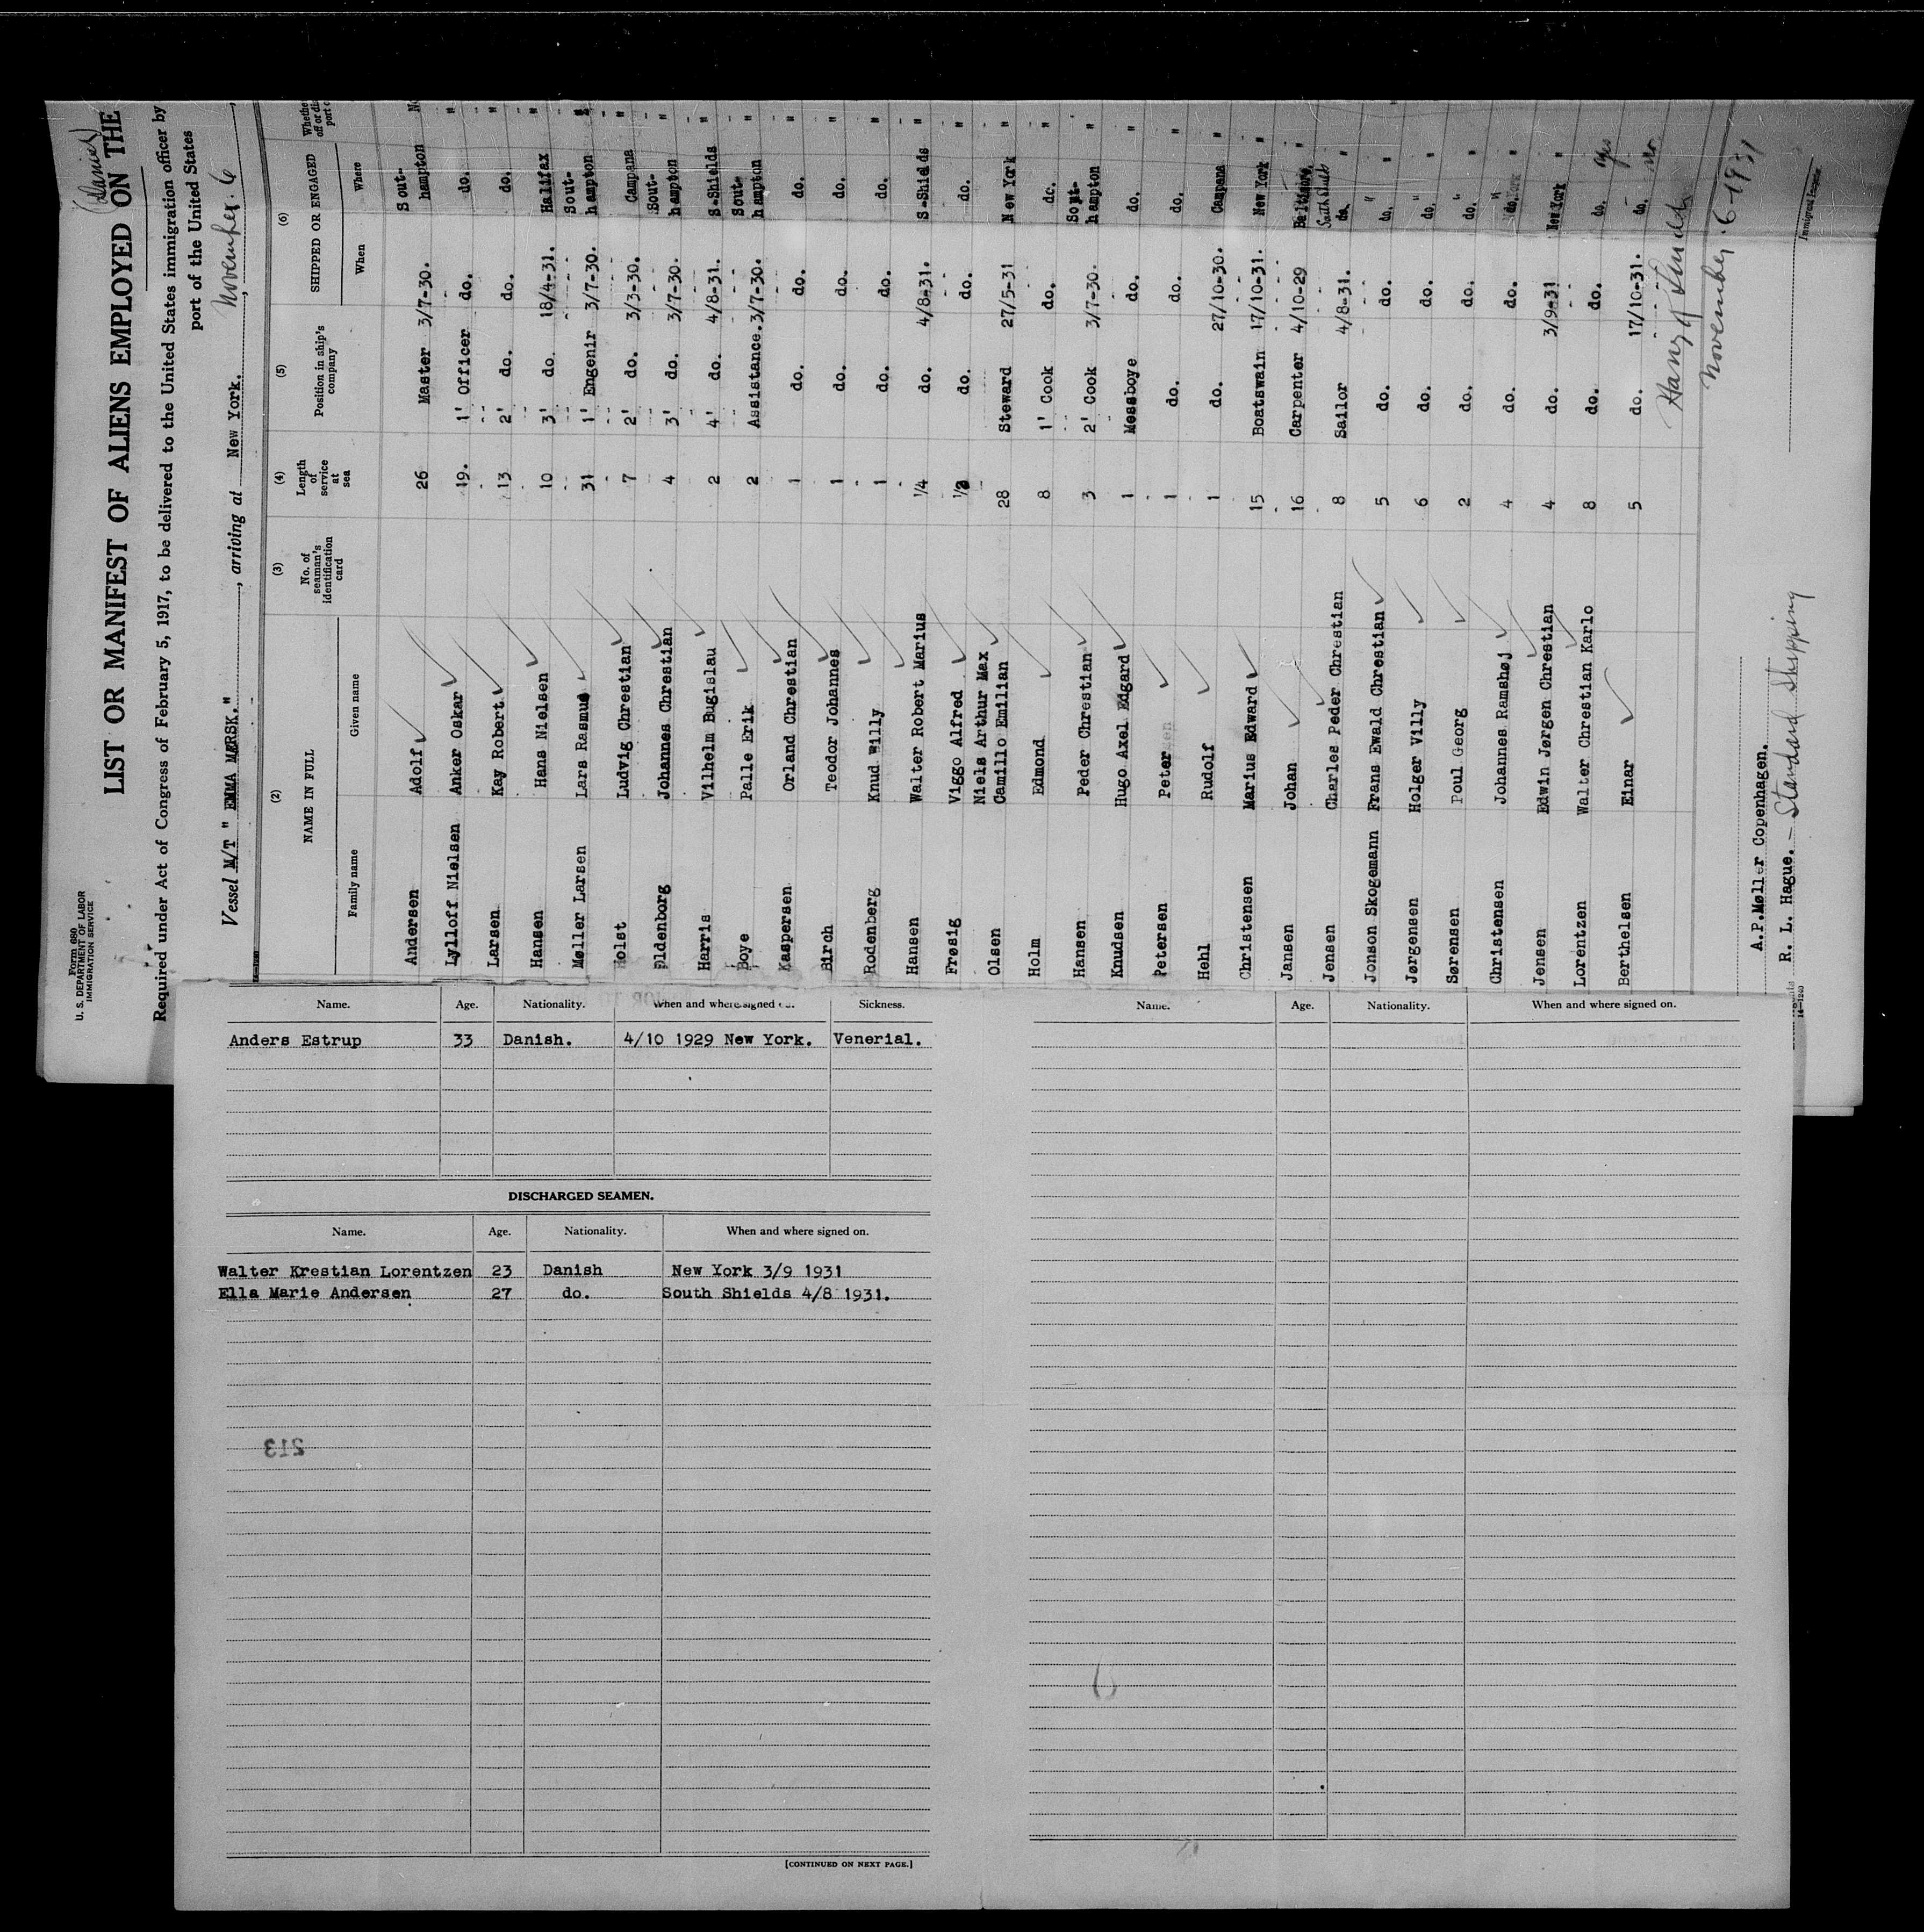 Form 680
U. S. DEPARTMENT OF LABOR
IMMIGRATION SERVICE
(Danish)
LIST OR MANIFEST OF ALIENS EMPLOYED ON THE
Required under Act of Congress of February 5, 1917, to be delivered to the United States immigration officer by
port of the United States
Vessel M/T " EMMA MÆRSK ", arriving at New York. November. 6,
(2) (3) (4) (5) (6)
NAME IN FULL No. of seaman's identification card Length of service at sea Position in ship's company SHIPPED OR ENGAGED
Family name Given name When Where
Andersen Adolf 26 Master 3/7-30. Sout-hampton
Lylloff Nielsen Anker Oskar 19. 1' Officer do. do. "
Larsen Kay Robert 13 2' do. do. do. "
Hansen Hans Nielsen 10 3' do. 18/4-31. Halifax "
Møller Larsen Lars Rasmus 31 1' Engenir 3/7-30. Sout-hampton "
Holst Ludvig Chrestian 7 2' do. 3/3-30. Campana "
Oldenborg Johannes Chrestian 4 3' do. 3/7-30. Sout-hampton "
Harris Vilhelm Bugislau 2 4' do. 4/8-31. S-Shields "
Boye Palle Erik 2 Assistance. 3/7-30. Sout-hampton "
Kaspersen Orland Chrestian 1 do. do. do. "
Birch Teodor Johannes 1 do. do. do. "
Rodenberg Knud Willy 1 do. do. do. "
Hansen Walter Robert Marius 1/4 do. 4/8-31. S-Shields "
Frøsig Viggo Alfred do. do. do. "
Olsen Niels Arthur Max Camillo Emilian 28 Steward 27/5-31 New York "
Holm Edmond 8 1' Cook do. do. "
Hansen Peder Chrestian 3 2' Cook 3/7-30. Sout-hampton "
Knudsen Hugo Axel Edgard 1 Messboye do. do. "
Petersen Peter 1 do. do. do. "
Hehl Rudolf 1 do. 27/10-30. Campana "
Christensen Marius Edward 15 Boatswain 17/10-31. New York "
Jansen Johan 16 Carpenter 4/10-29 Baltimore. "
Jensen Charles Peder Chrestian 8 Sailor 4/8-31. South Shields do. "
Jonson Skogemann Frans Ewald Chrestian 5 do. do. do. "
Jørgensen Holger Villy 6 do. do. do. "
Sørensen Poul Georg 2 do. do. do. "
Christensen Johannes Ramshøj 4 do. do. do. "
Jensen Edwin Jørgen Chrestian 4 do. 3/9-31 New York "
Lorentzen Walter Chrestian Karlo 8 do. do. do. yes
Berthelsen Einar 5 do. 17/10-31. do. no
November. 6-1931
A.P.Møller Copenhagen.
R. L. Hague. - Standard Shipping
Immigrant Inspector
14-1240
Name. Age. Nationality. When and where signed on. Sickness.
Anders Estrup 33 Danish. 4/10 1929 New York. Venerial.
DISCHARGED SEAMEN.
Name. Age. Nationality. When and where signed on.
Walter Krestian Lorentzen 23 Danish New York 3/9 1931
Ella Marie Andersen 27 do. South Shields 4/8 1931.
213
[CONTINUED ON NEXT PAGE.]
Name. Age. Nationality. When and where signed on.